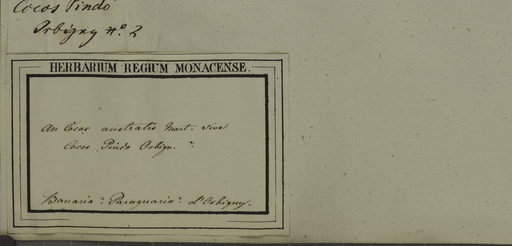 Cocos Pindó
Orbigny N.º 2
HERBARIUM REGIUM MONACENSE.
An Cocos australis Mart. sive
Cocos Pindo Orbign. ?
Bonaria? Paraguaria? d'Orbigny.